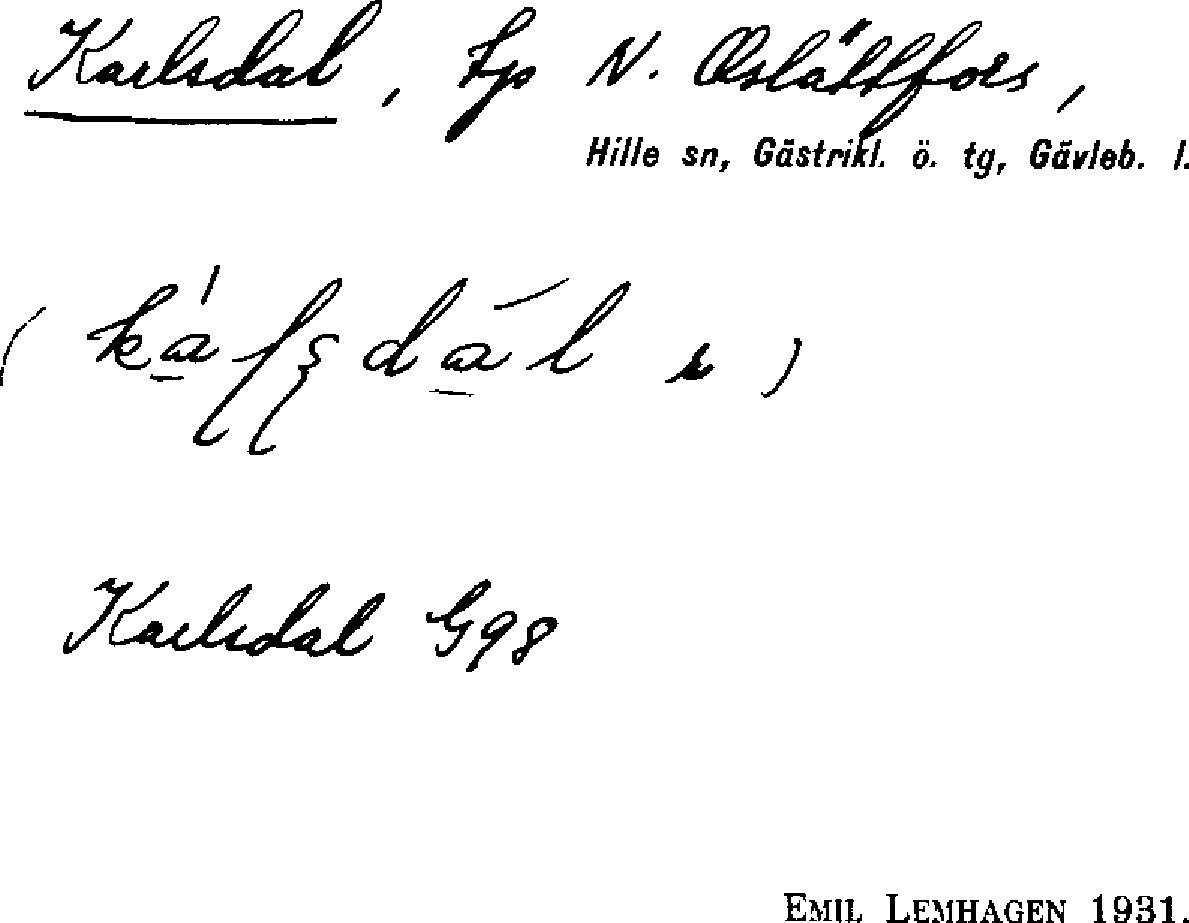 Karlsdal, tp N. Oslättfors,
Hille sn, Gästrikl. ö. tg, Gävleb. l.
Karlsdal G98
EMIL LEMHAGEN 1931.